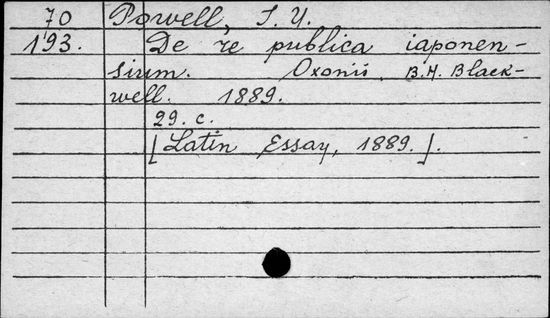 70 Powell, I. U.
193. De re publica iaponen-
sium. Oxonii. B. H. Black-
well. 1889.
29. c.
[Latin Essay, 1889.].